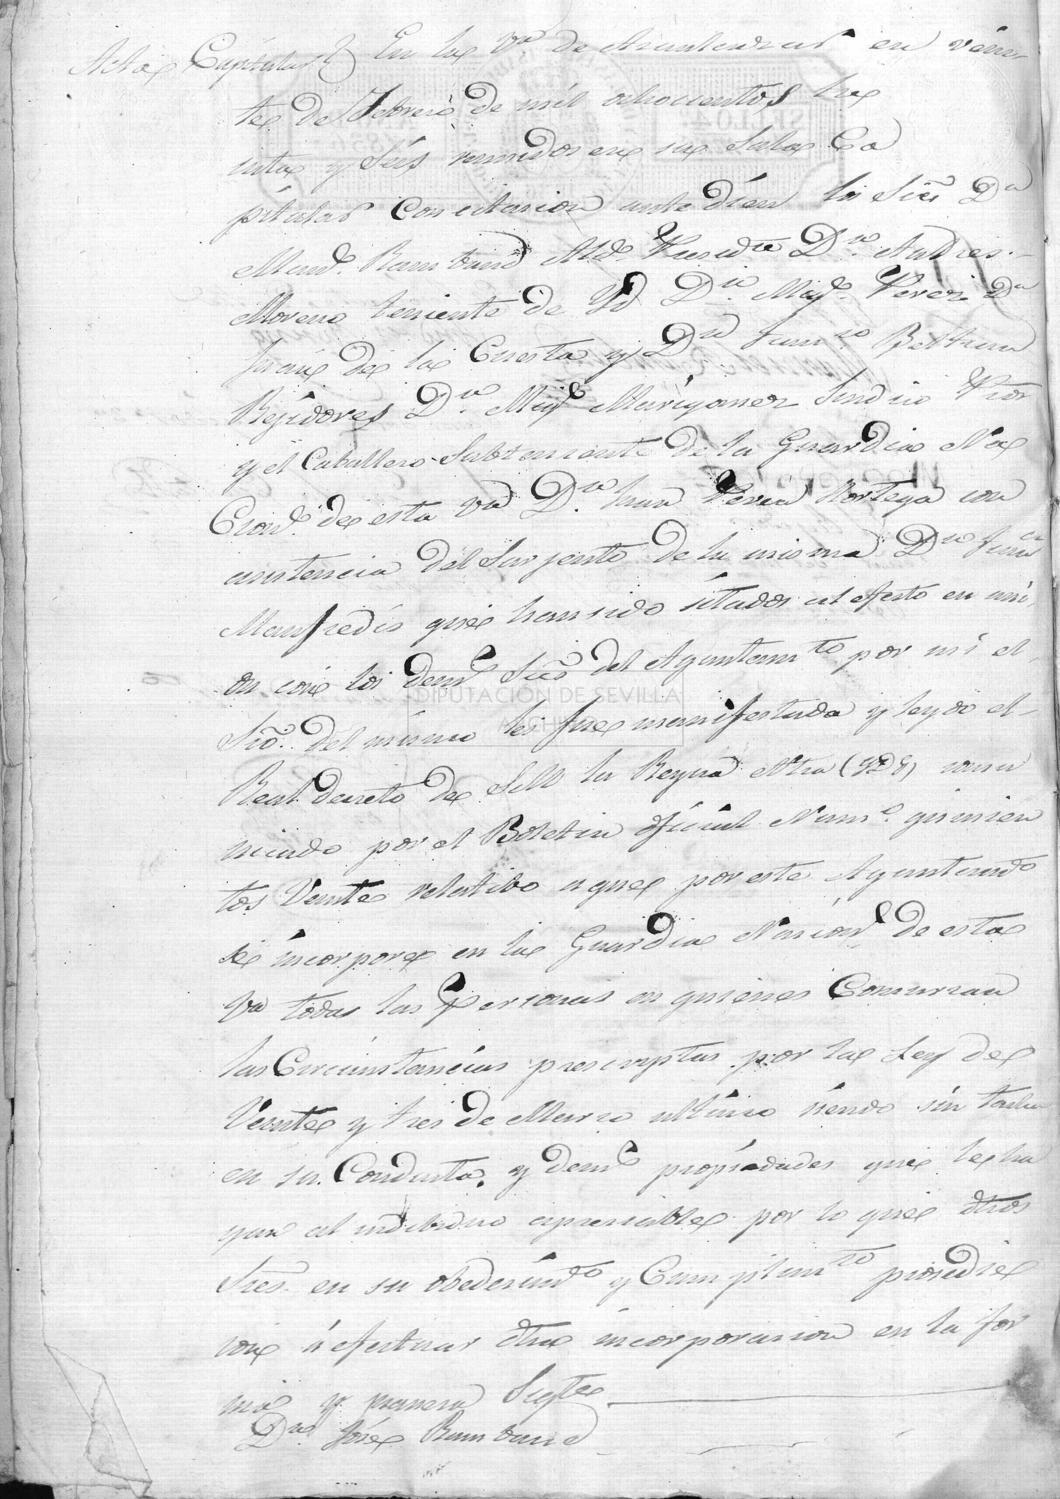 Acta Capitular} En la Vª de en vein-
te de Febrero de mil ochocientos tre
inta y seis reunidos en su Sala Ca
pitular con citacion ante diem los Sres Dn
Manl. Rambaud Alde. Presidte Dn. Andres
Moreno teniente de Yd Dn. Migl. Perez Dn
Juan de la Cuesta y Dn Franco Beltran
Rejidores Dn. Migl Marigomez Sindico Pror
y el Caballero Subteniente de la Guardia Na
Cional de esta Va Dn. Juan Perea Hortega con
asistencia del Sarjento de la misma Dn Franco
Manfredis que han sido sitados al efecto en uni
on con los demas Sres del Ayuntamto por mi el
Srio. del mismo les fue manifestada y leydo el
Real decreto de S M la Reyna Ntra (QDG) comu
nicado por el Boletin oficial Numo. quinien
tos Veinte relatibo a que por este Ayuntamto
se incorpore en la Guardia Nacional de esta
Va todas las Personas en quienes Concurran
las Circunstancias prescriptas por la Ley de
Veinte y tres de Marzo ultimo siendo sin tacha
en su Conducta, y demas propiedades que le ha
gan al individuo apreciable por lo que dhos
Sres. en su obedecimto y Cumplimto procedie
ron a efectuar dha incorporacion en la for
ma y manera Sigte
Dn José Rambaud
SELLO 4º
1836
DIPUTACIÓN DE SEVILLA